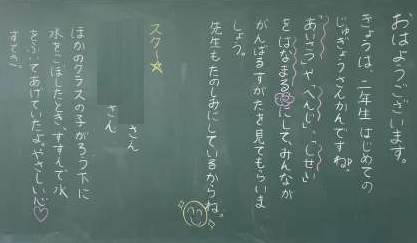 おはようございます。
きょうは、二年生はじめての
じゅぎょうさんかんですね。
"あいさつ"や"へんじ"、"しせい"
をはなまるにして、みんなが
がんばるすがたを見てもらいま
しょう。
先生もたのしみにしているからね。
スター
さん
さん
ほかのクラスの子がろう下に
水をこぼしたとき、すすんで水
をふいてあげていたよ。やさしい心
すてき。